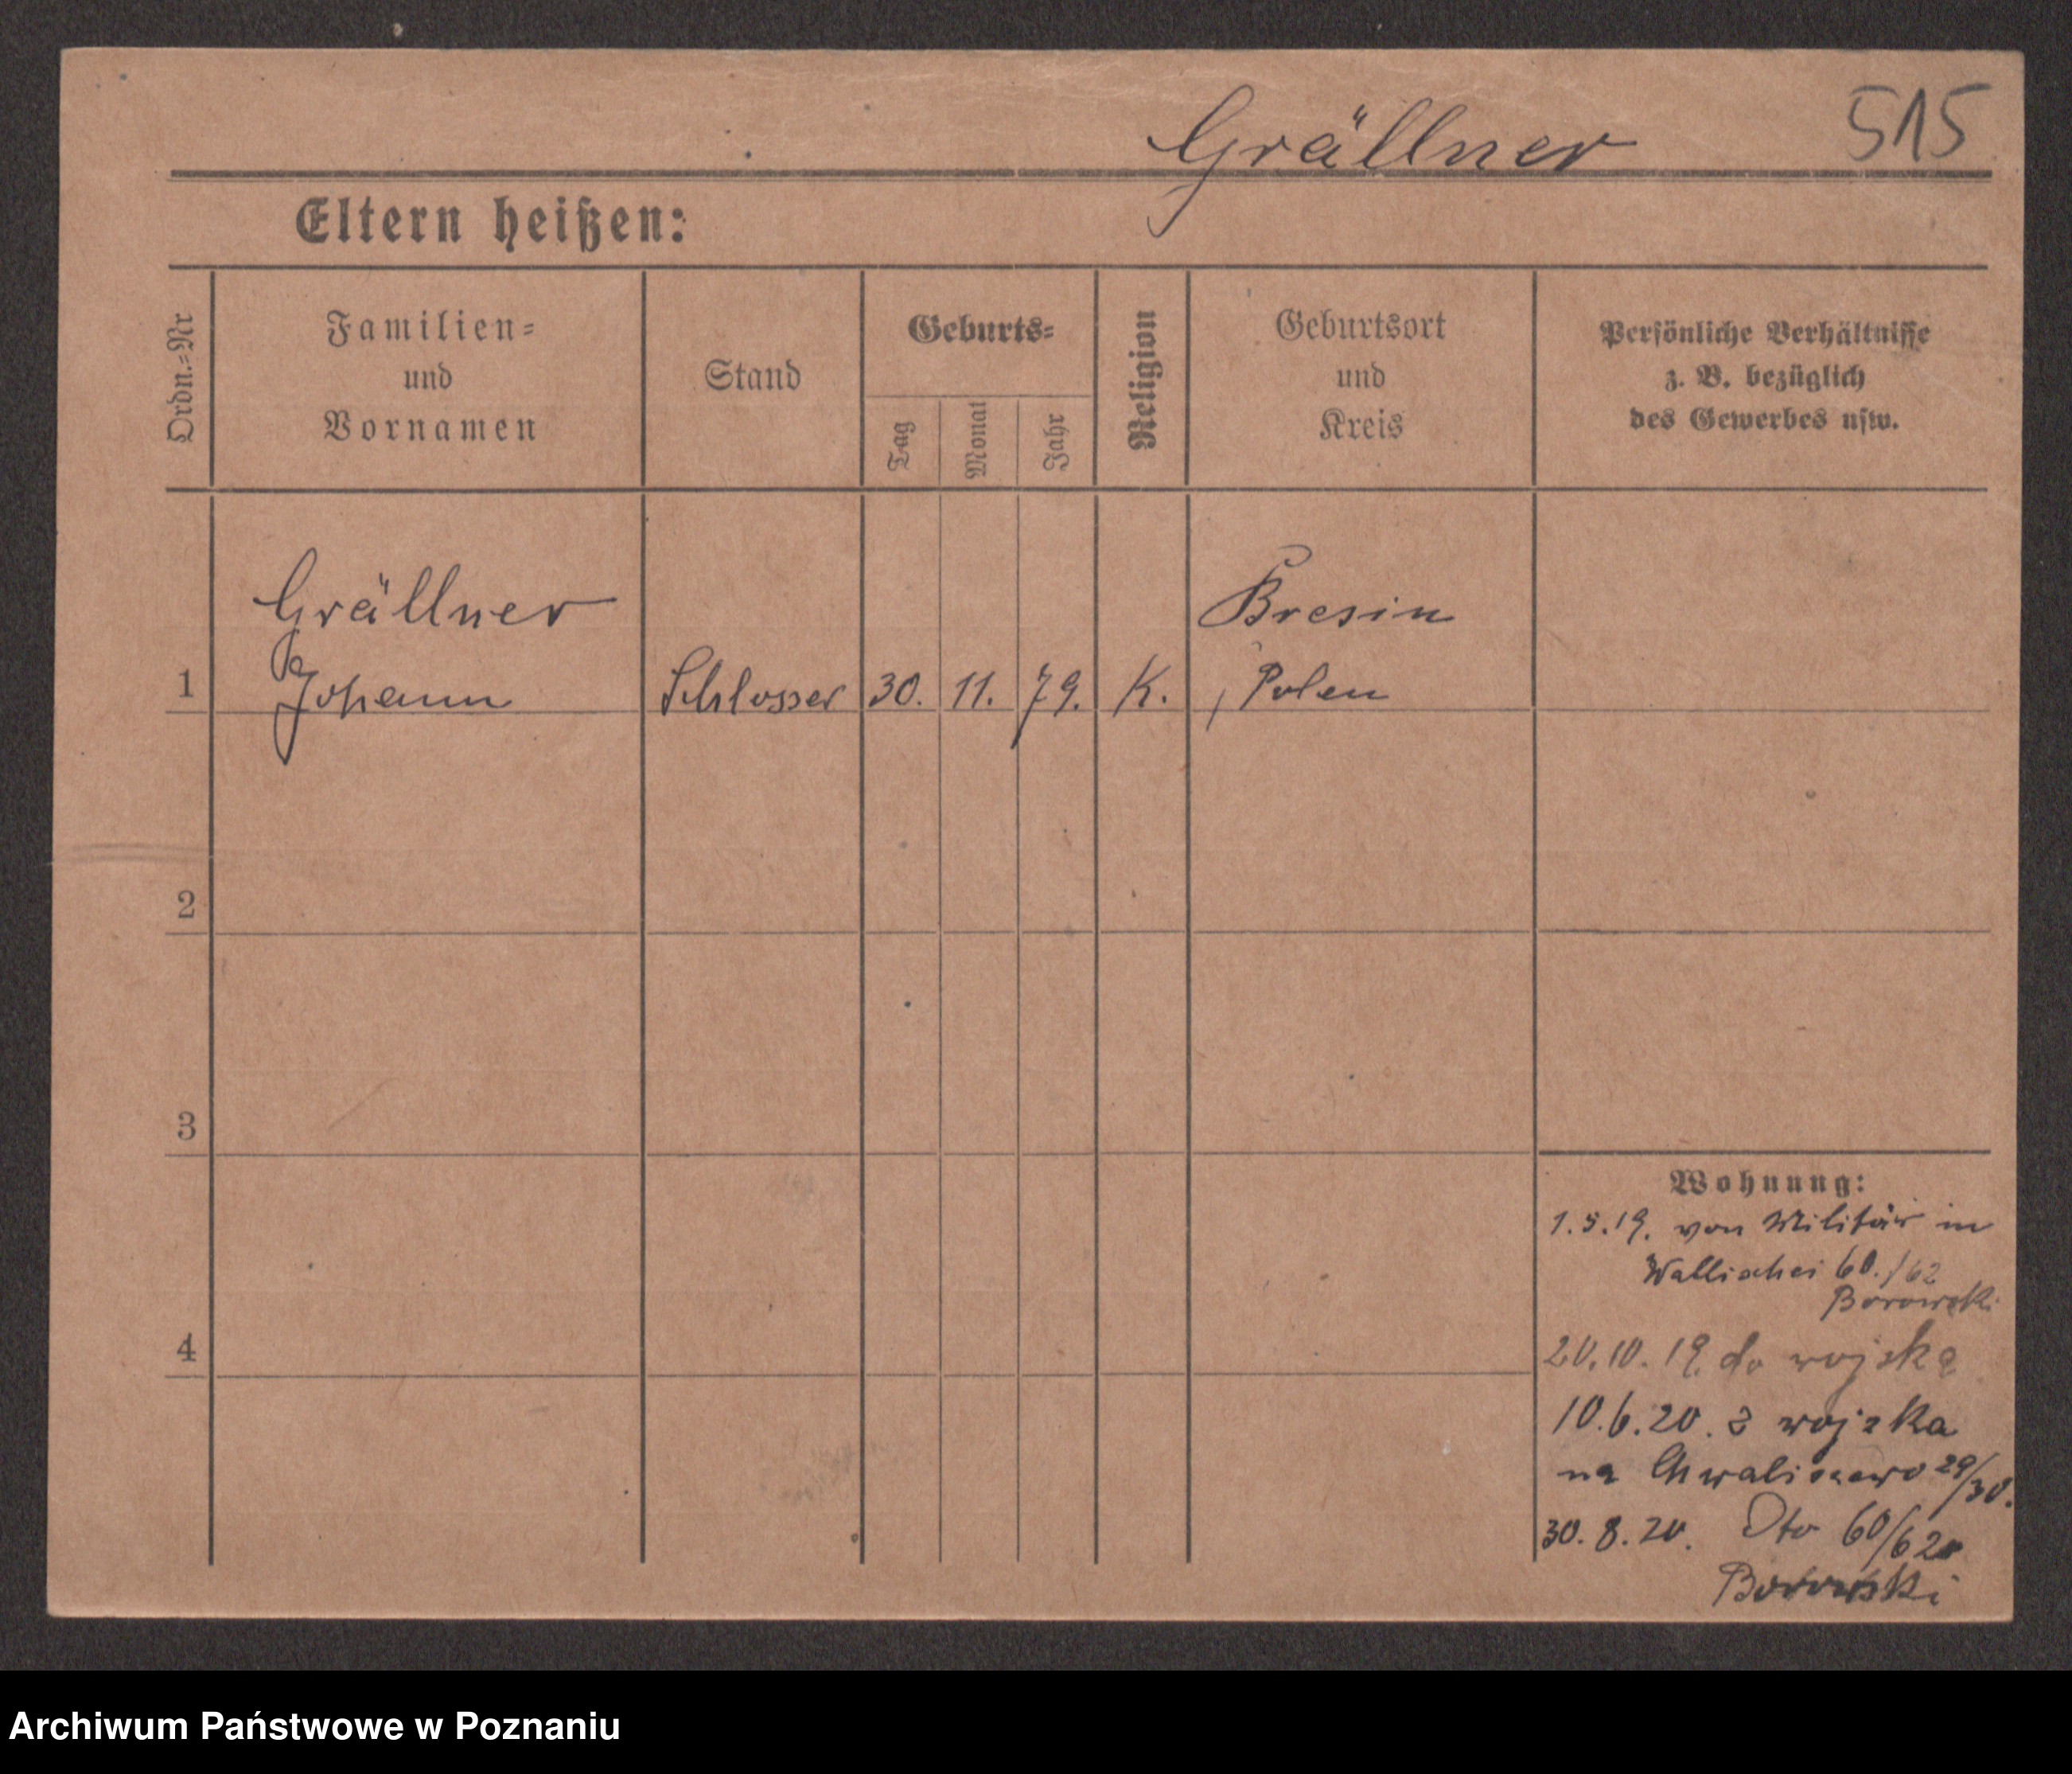 Grällner 515
Eltern heißen:
Ordn.=Nr
Familien=
und
Vornamen
Stand
Geburts=
Tag
Monat
Jahr
Religion
Geburtsort
und
Kreis
Persönliche Verhältnisse
z. B. bezüglich
des Gewerbes usw.
Grällner Bresin
1 Johann Schlosser 30. 11. 79. K. , Polen
2
3
4
Wohnung:
1.5.19. von Militär in
Wallischei 60./62
Borowski
20.10.19. do wojska
10.6.20. z wojska
na Chwaliszewo 29/30.
30.8.20. Dto 60/62
Borowski
Archiwum Państwowe w Poznaniu